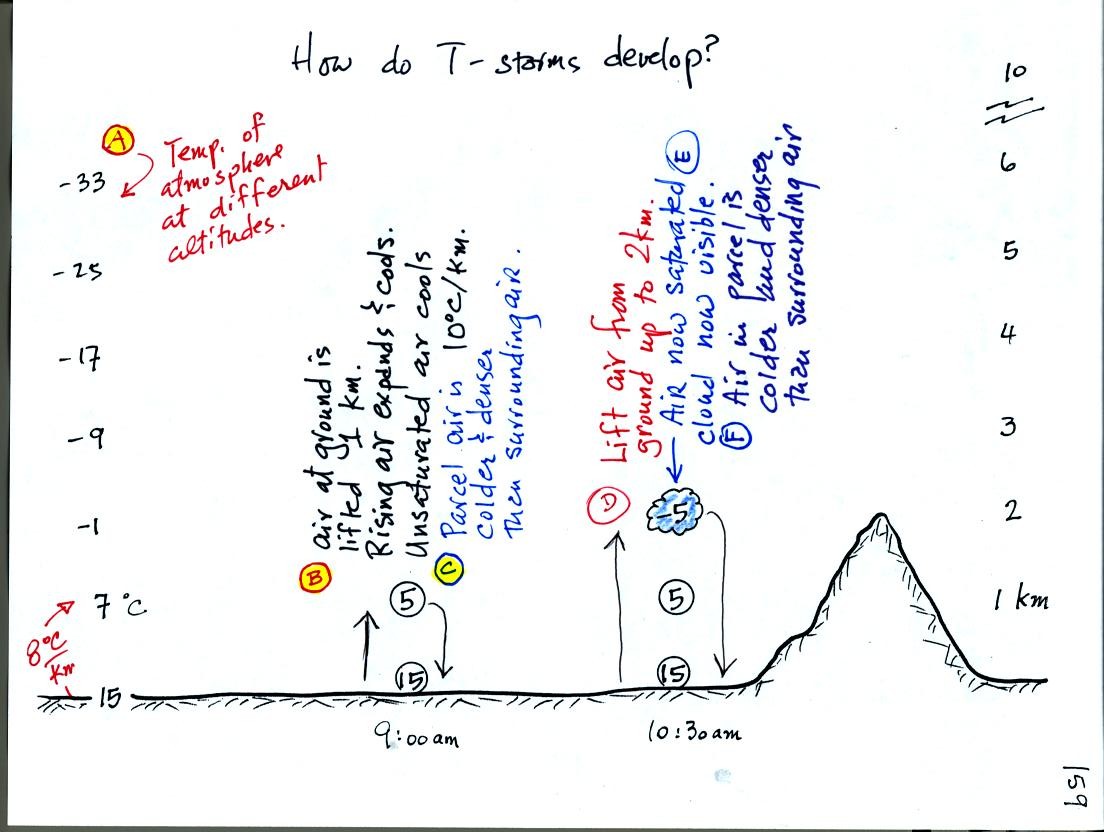 How do T-storms develop?
A
Temp. of
atmosphere
at different
altitudes.
-33
-25
-17
-9
-1
7 °C
15
8°C
km
B
air at ground is
lifted 1 km.
Rising air expands & cools.
Unsaturated air cools
10°C/km.
C
Parcel air is
colder & denser
then surrounding air.
5
15
9:00am
D
Lift air from
ground up to 2km.
E
Air now saturated
cloud now visible.
F
Air in parcel is
colder and denser
then surrounding air
-5
5
15
10:30am
10
6
5
4
3
2
1 km
159